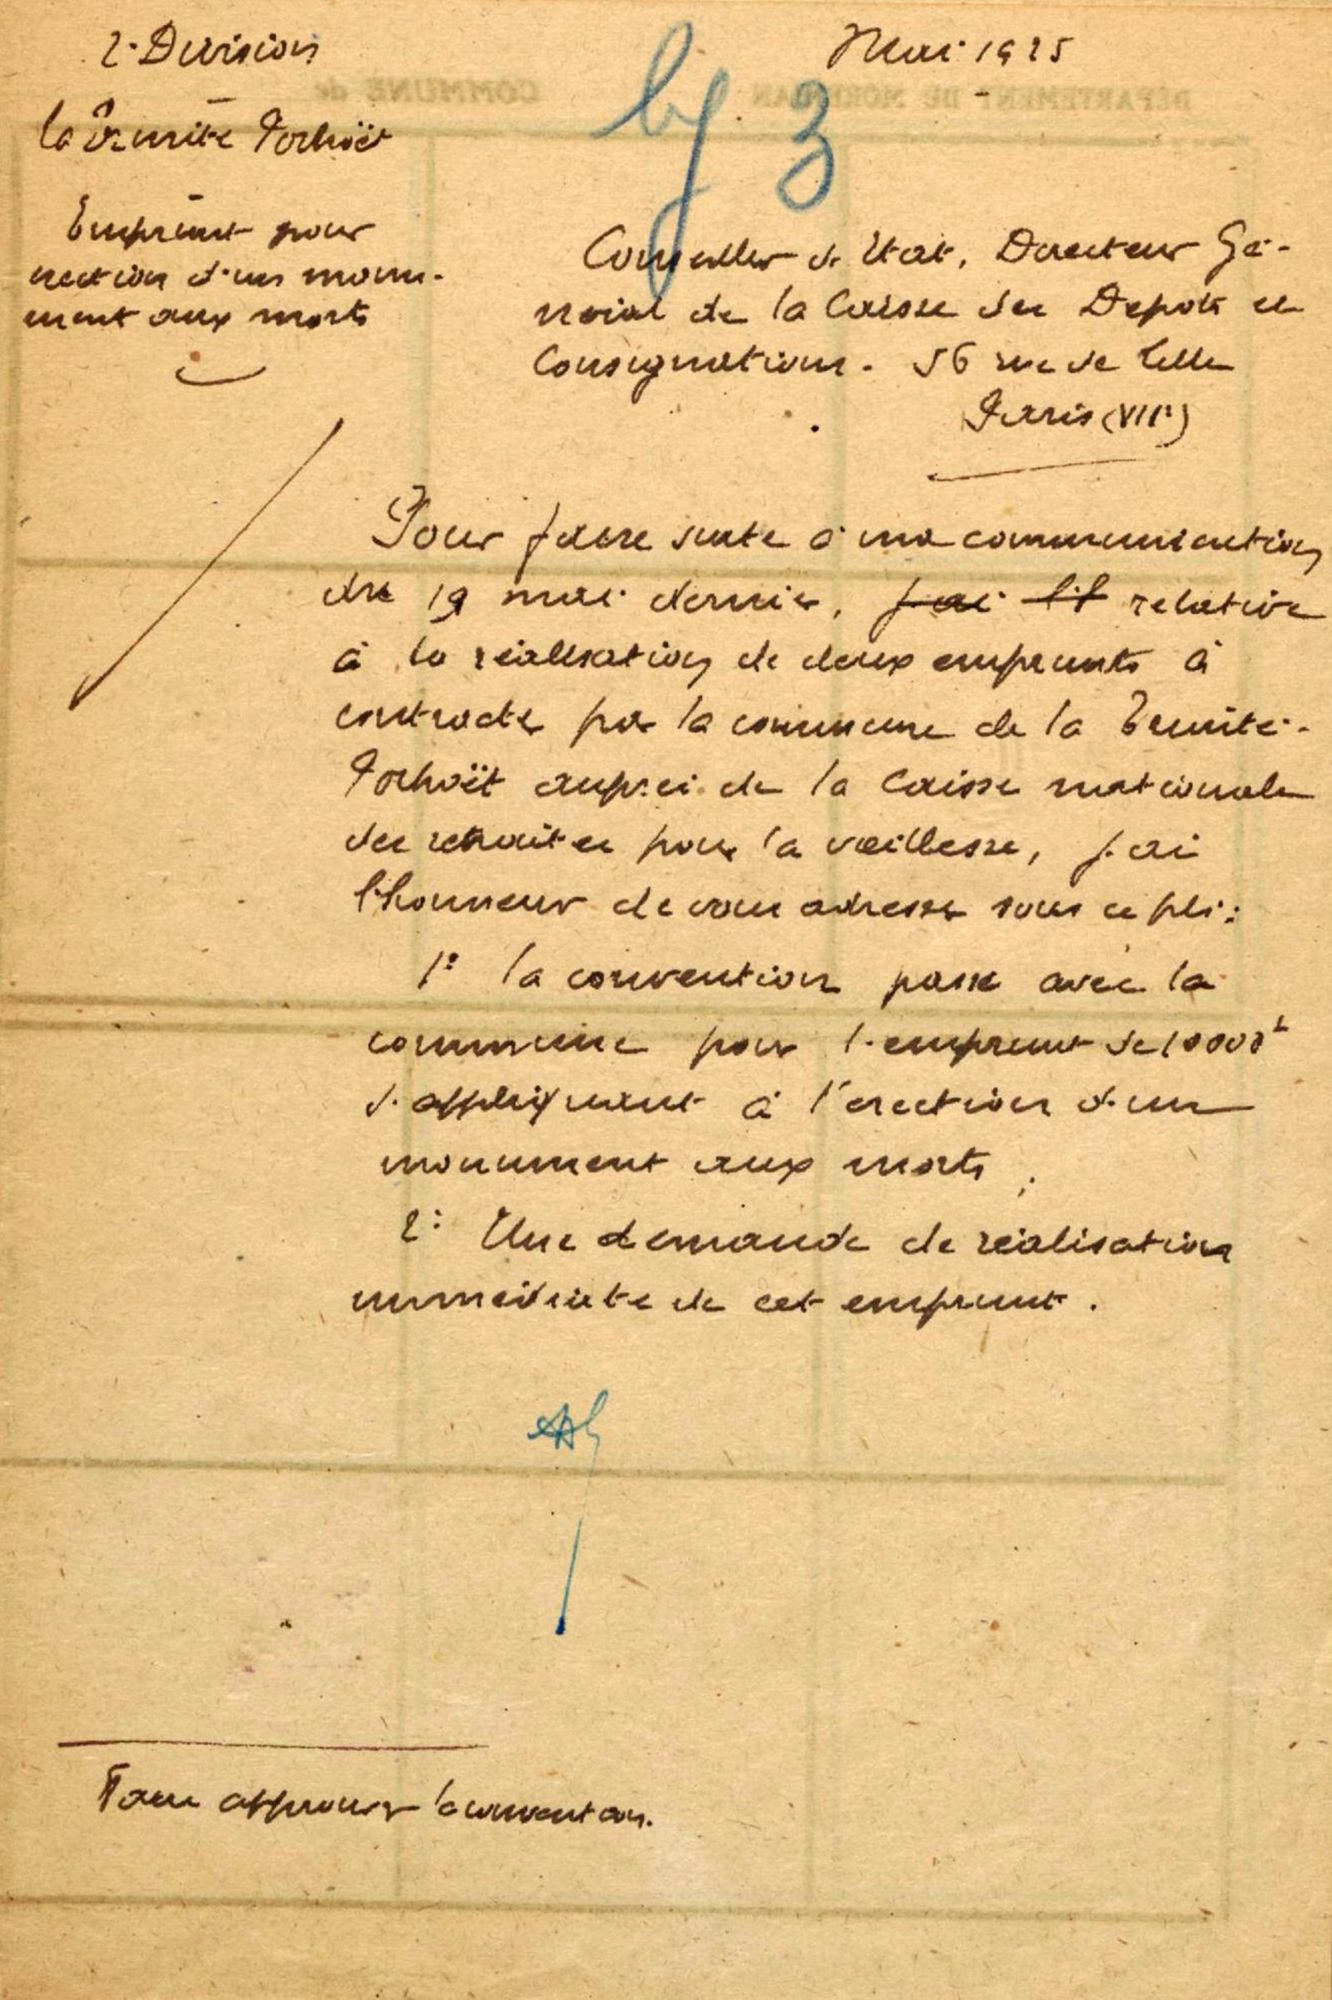 2e Division
Mai 1925
DÉPARTEMENT DU MORBIHAN
COMMUNE de
3
la Trinité Porhoët
Emprunt pour
érection d'un monu-
ment aux morts
Conseiller d'Etat, Directeur Gé-
néral de la Caisse des Depots et
Consignations. 56 rue de Lille
Paris (VIIe)
Pour faire suite à ma communication
du 19 mai dernier, j'ai relative
à la réalisation de deux emprunts à
contracter par la commune de la Trinité-
Porhoët auprès de la Caisse nationale
des retraites pour la vieillesse, j'ai
l'honneur de vous adresser sous ce pli :
1° la convention passée avec la
commune pour l'emprunt de 10000f
s'appliquant à l'érection d'un
monument aux morts ;
2° Une demande de réalisation
immédiate de cet emprunt.
Faire approuver la convention.